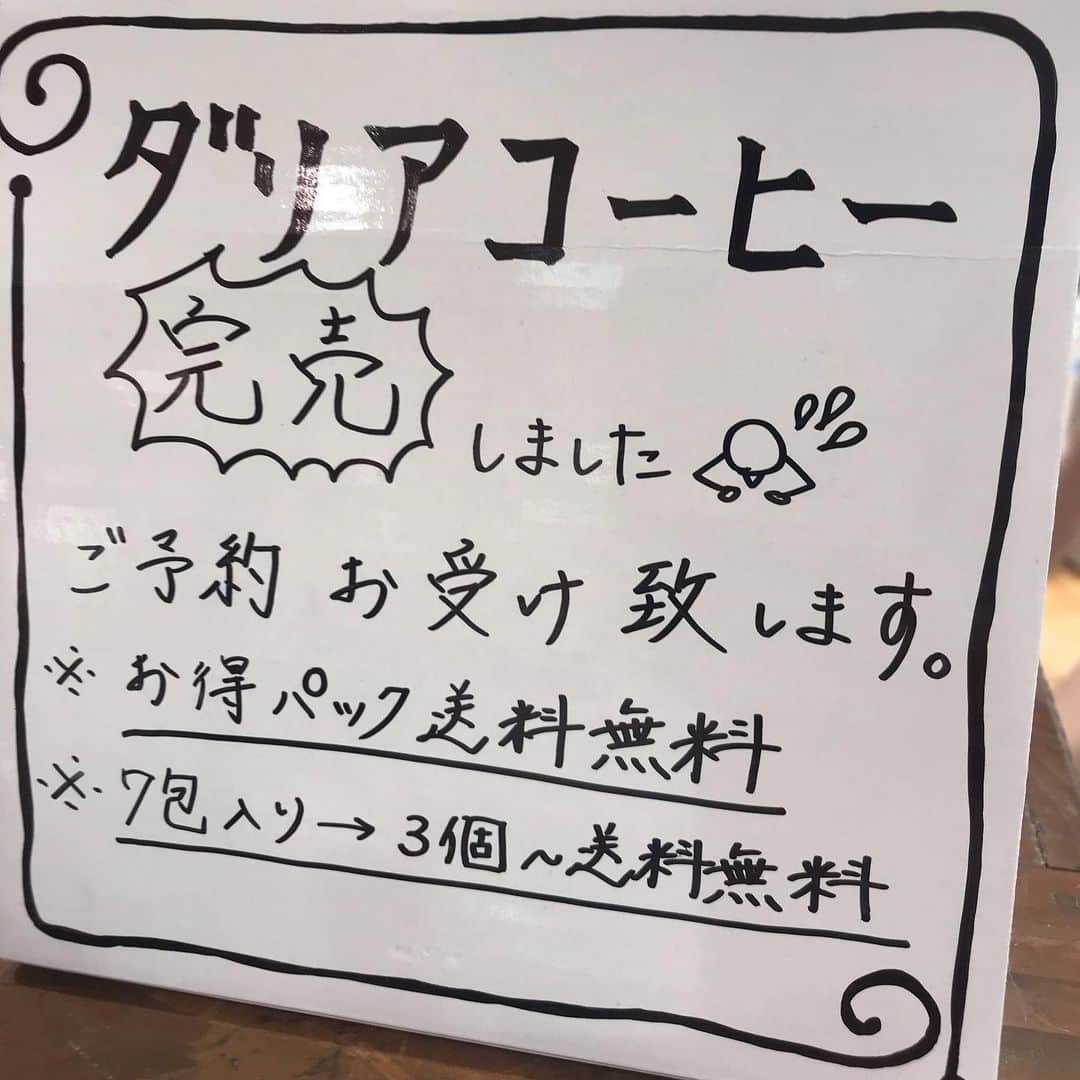 ダリアコーヒー
完売しました
ご予約お受け致します。
※お得パック送料無料
※7包入り→3個~送料無料